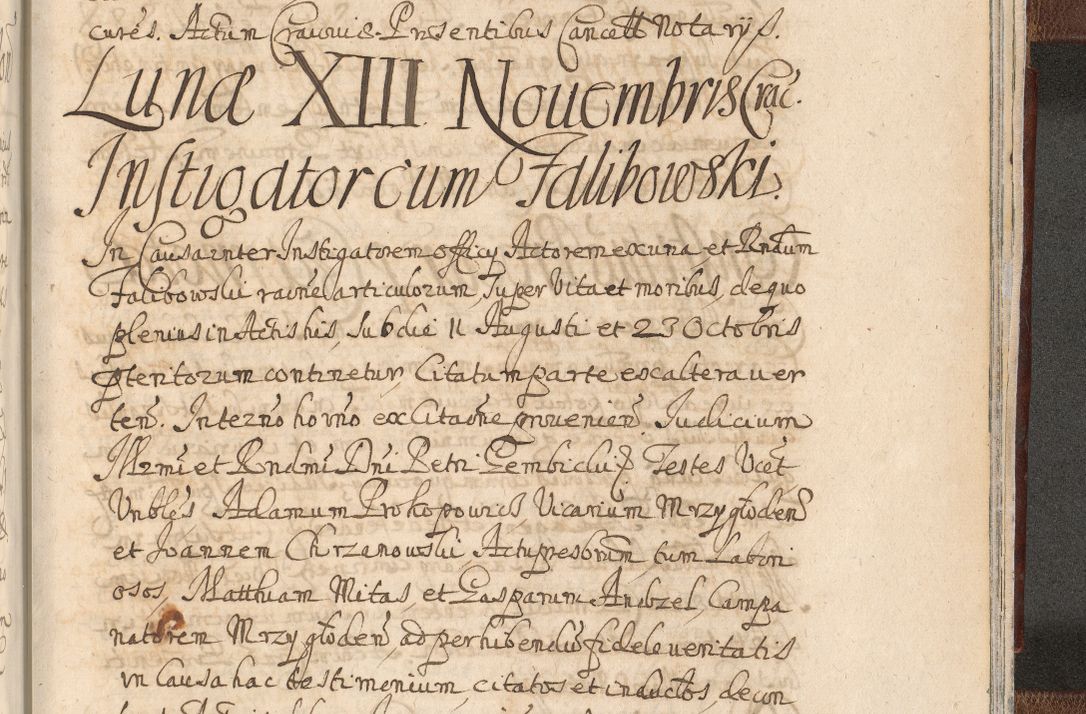 cures. Actum Cracoviæ. Præsentibus Cancell Notarijs.
Lunæ XIII Nouembris Crac.
Instigator cum Falibowski.
In Causa inter Instigatorem officij Actorem ex una et Rndum
Falibowski raōne articulorum, super Vita et moribus, de quo
plenius in Actis his, sub die 11 Augusti et 23 Octobris
pteritorum continetur, Citatum parte ex altera uer
ten. Interno horno ex Citaōne prouenien. Iudicium
Illrmi et Rndmi Dni Petri Gembicki Testes Vcet
Vnbles Adamum Prokopowicz Vicarium Mrzygłoden
et Joannem Chrzanowski, tum Labori
osos, Matthiam Mitas, et Gasparum Andzel, Campa
natorem Mrzygłoden, ad perhibendū fidele ueritatis
in Causa hac testimonium citatos et inductos, decon